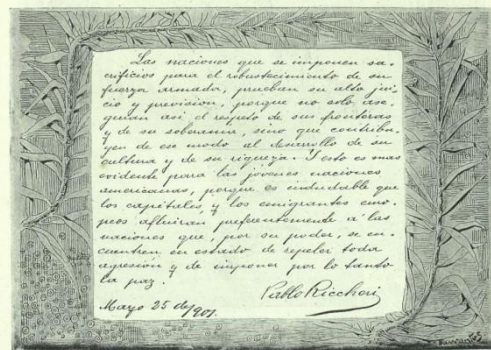 Las naciones que se imponen sa-
crificios para el robustecimiento de su
fuerza armada, prueban su alto jui-
cio y prevision, porque no solo ase-
guran asi, el respeto de sus fronteras
y de su soberania, sino que contribu-
yen de ese modo al desarrollo de su
cultura y de su riqueza. Y esto es mas
evidente para las jóvenes naciones
americanas, porque es indudable que
los capitales y los emigrantes euro-
peos afluirán preferentemente a las
naciones que, por su poder, se en-
cuentren en estado de repeler toda
agresión y de imponer por lo tanto
la paz.
Pablo Riccheri
Mayo 25 de/901.